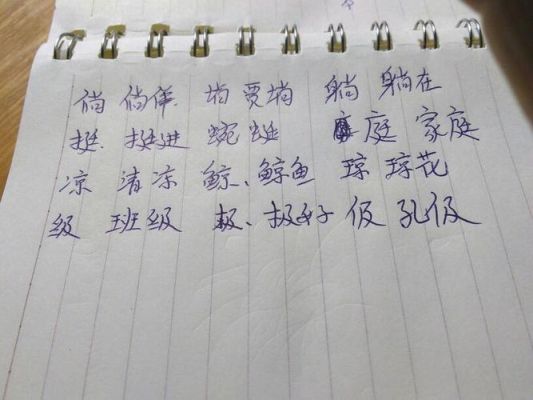 倘 倘佯 埫 贾埫 躺 躺在
挺 挺进 蜿蜒 庭 家庭
凉 清凉 鲸、鲸鱼 琼 琼花
级 班级 极、极好 伋 孔伋